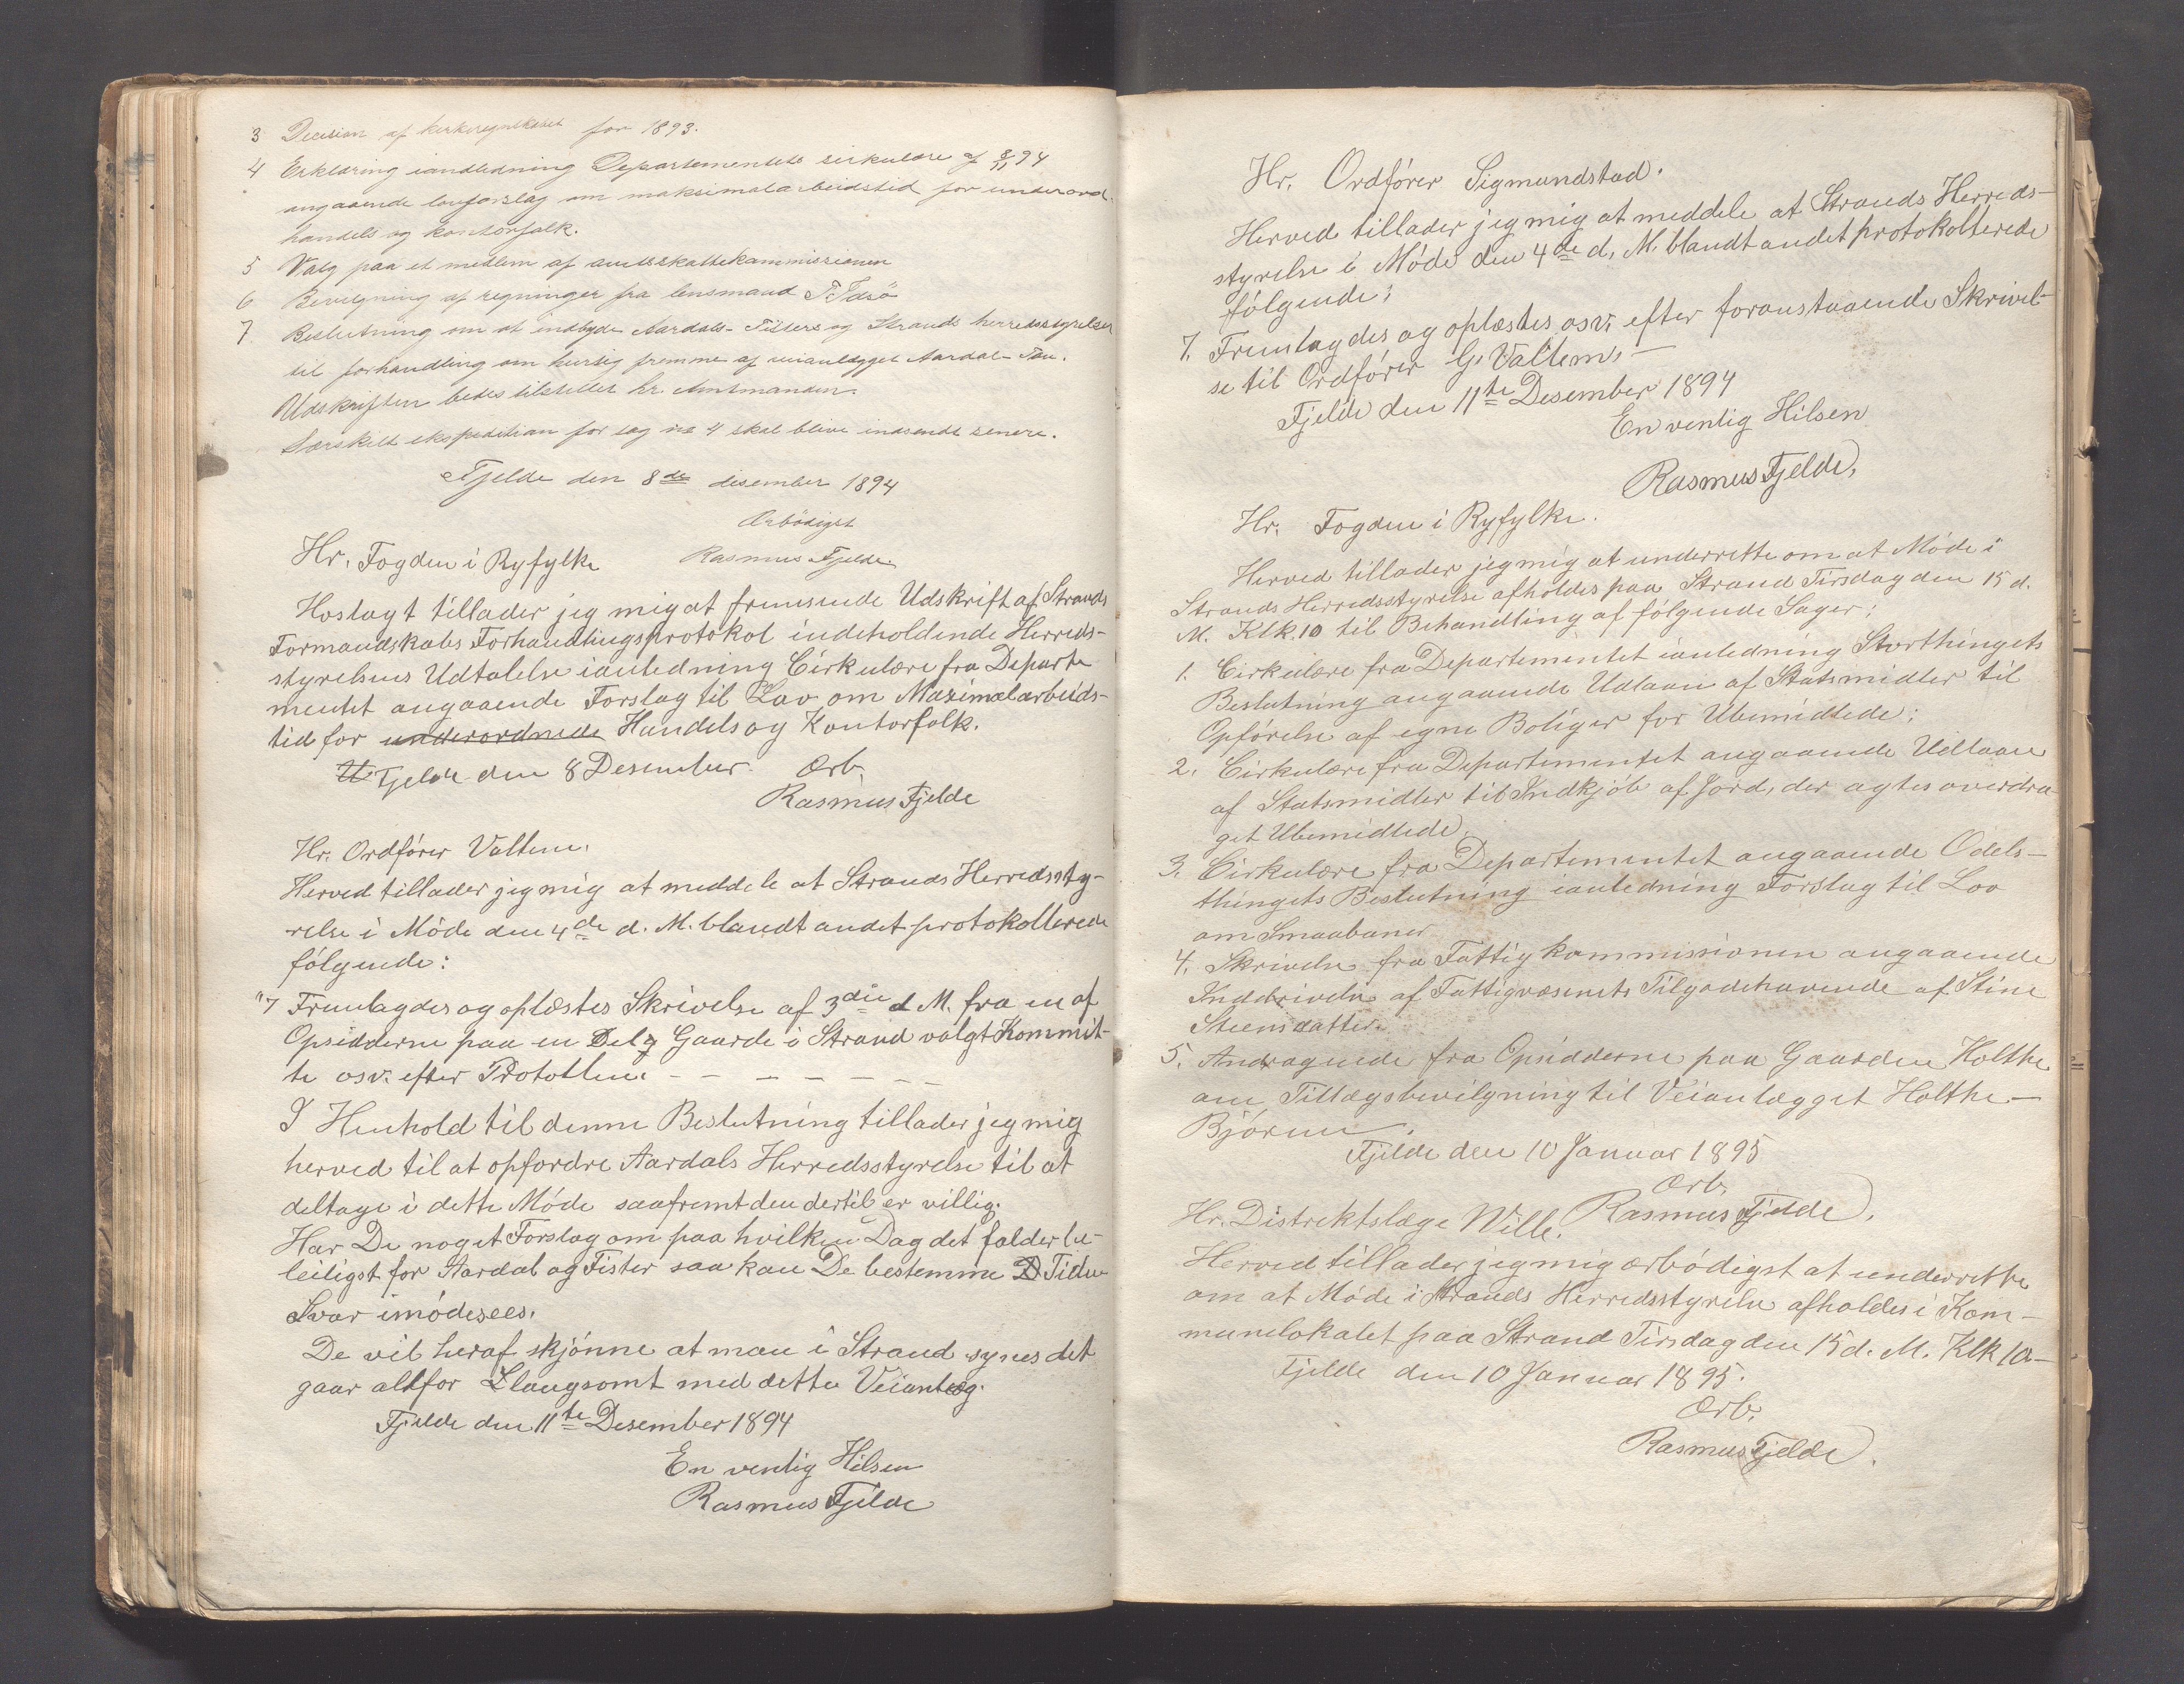 3 Decision af kirkeregnskabet for 1893.
4 Erklæring iandledning Departementets sirkulære af 8/11 94
angaaende lovforslag om maksimalarbeidstid for underord.
handels og kontorfolk.
5 Valg paa et medlem af amtsskattekommissionen
6 Bevilgning af regninger fra lensmand T. Idsö
7 Beslutning om at indbyde Aardals- Fisters og Strands herredsstyrelser
til forhandling om hurtig fremme af veianlægget Aardal - Tau.
Udskriften bedes tilstillet hr. Amtmanden.
Særskilt ekspedition for sag no 4 skal blive indsendt senere.
Fjelde den 8de desember 1894
Ærbödigst
Rasmus Fjelde.
Hr. Fogden i Ryfylke
Hoslagt tillader jeg mig at fremsende Udskrift af Strands
Formandskabs Forhandlingsprotokol indeholdende Herreds-
styrelsens Udtalelse ianledning Cirkulære fra Departe
mentet angaaende Forslag til Lov om Maximalarbeids-
tid for underordnede Handels og Kontorfolk.
Fjelde den 8 Desember. Ærb.
Rasmus Fjelde
Hr. Ordförer Valtem.
Herved tillader jeg mig at meddele at Strands Herredssty-
relse i Möde den 4de d. M. blandt andet protokollerede
fölgende:
"7 Fremlagdes og oplæstes Skrivelse af 3die d M. fra en af
Opsidderne paa en Del Gaarde i Strand valgt Kommit-
te osv. efter Protokllen. - - - - - - -
I Henhold til denne Beslutning tillader jeg mig
herved til at opfordre Aardals Herredsstyrelse til at
deltage i dette Möde saafremt den dertil er villig.
Har De noget Forslag om paa hvilken Dag det falder be-
leiligst for Aardal og Fister saa kan De bestemme Tiden
Svar imödesees.
De vil heraf skjönne at man i Strand synes det
gaar altfor langsomt med dette Veianlæg.
Fjelde den 11te Desember 1894
En venlig Hilsen
Rasmus Fjelde
Hr. Ordförer Sigmundstad.
Herved tillader jeg mig at meddele at Strands Herreds-
styrelse i Möde den 4de d. M. blandt andet protokollerede
fölgende:
7. Fremlagdes og oplæstes osv. efter foranstaaende Skrivel-
se til Ordförer G. Valtem. -
Fjelde den 11te Desember 1894
En venlig Hilsen
Rasmus Fjelde.
Hr. Fogden i Ryfylke.
Herved tillader jeg mig at underrette om at Möde i
Strands Herredsstyrelse afholdes paa Strand Tirsdag den 15 d.
M. Klk. 10 til Behandling af fölgende Sager:
1. Cirkulære fra Departementet ianledning Storthingets
Beslutning angaaende Udlaan af Statsmidler til
Opförelse af egne Boliger for Ubemidlede;
2. Cirkulære fra Departementet angaaende Udlaan
af Statsmidler til Indkjöb af Jord, der agtes overdra
get Ubemidlede.
3. Cirkulære fra Departementet angaaende Odels-
thingets Beslutning ianledning Forslag til Lov
om Smaabaner
4. Skrivelse fra Fattigkommissionen angaaende
Inddrivelse af Fattigvæsenets Tilgodehavende af Stine
Steensdatter.
5. Andragende fra Opsidderne paa Gaarden Holthe
om Tillægsbevilgning til Veianlægget Holthe -
Björnn.
Fjelde den 10 Januar 1895
Ærb.
Rasmus Fjelde.
Hr. Distriktslæge Wille.
Herved tillader jeg mig ærbödigst at underrette
om at Möde i Strands Herredsstyrelse afholdes i Kom-
munelokalet paa Strand Tirsdag den 15 d. M. Klk 10 -
Fjelde den 10 Januar 1895.
Ærb.
Rasmus Fjelde.